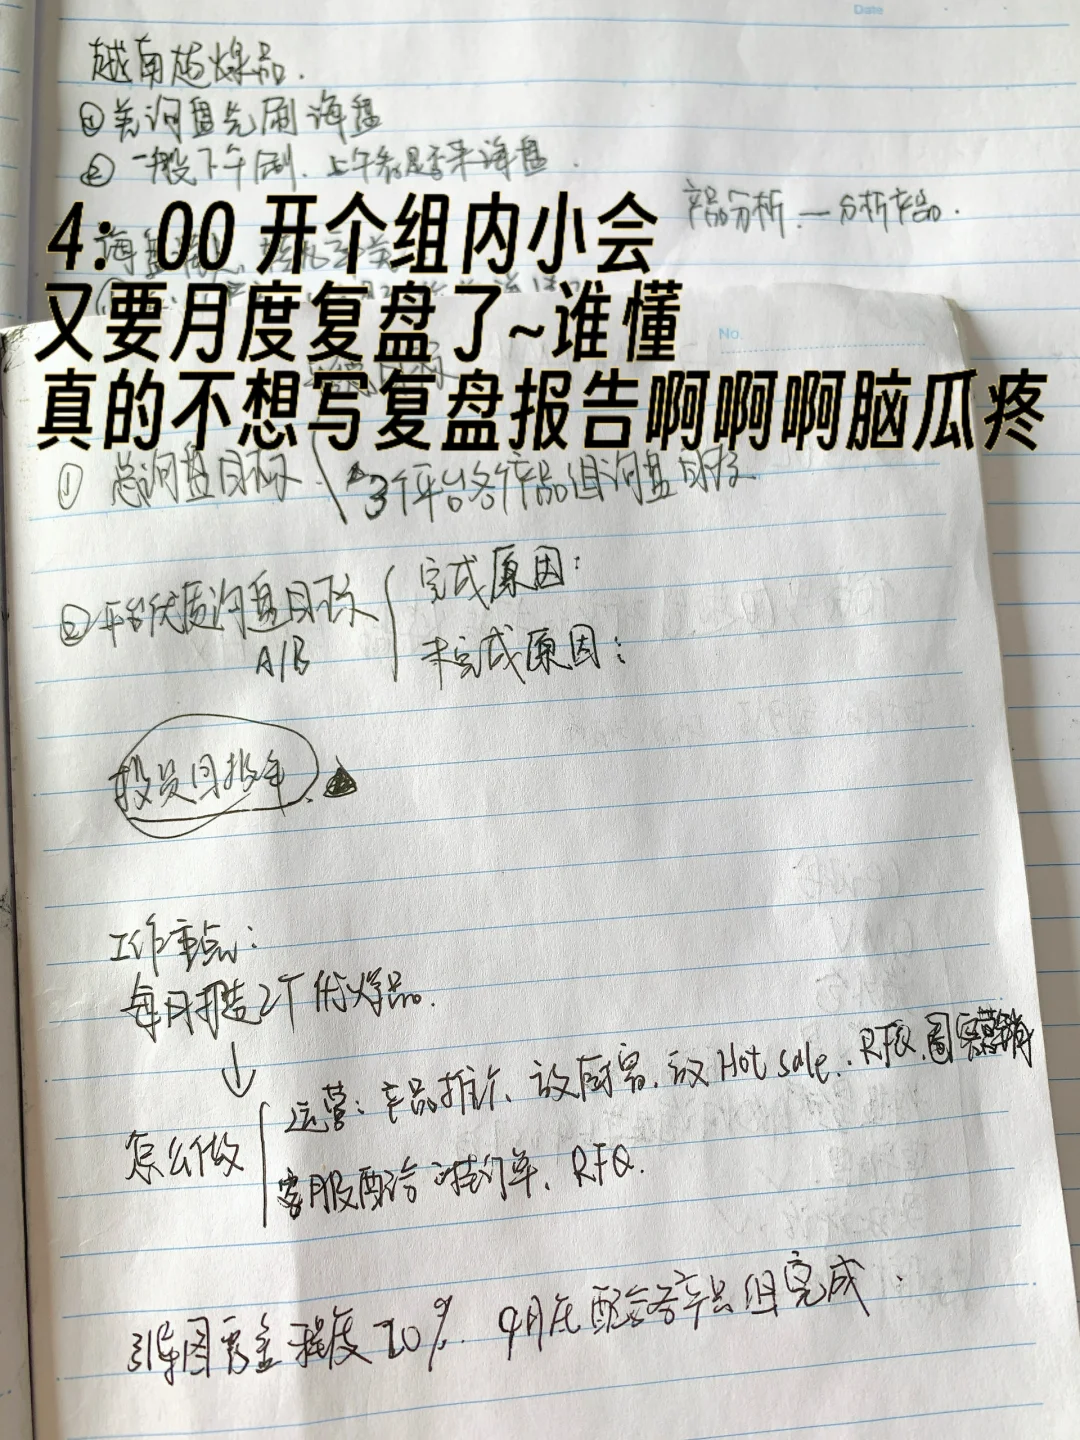 Date
越南超爆品.
① 关询盘先刷海盘
② 一般下午刷、上午看是否来海盘.
产品分析 — 分析产品.
4：00 开个组内小会
又要月度复盘了~谁懂
No.
真的不想写复盘报告啊啊啊脑瓜疼
① 总询盘目标
3个平台各个产品组询盘目标
② 平台优质询盘目标
A/B
完成原因：
未完成原因：
工作重点：
每月打造2个优爆品.
↓
怎么做
运营：产品推广、设橱窗、设Hot sale、RFQ、营销
客服配合 订单、RFQ.
重叠程度20%. 4月底配合各产品组完成.